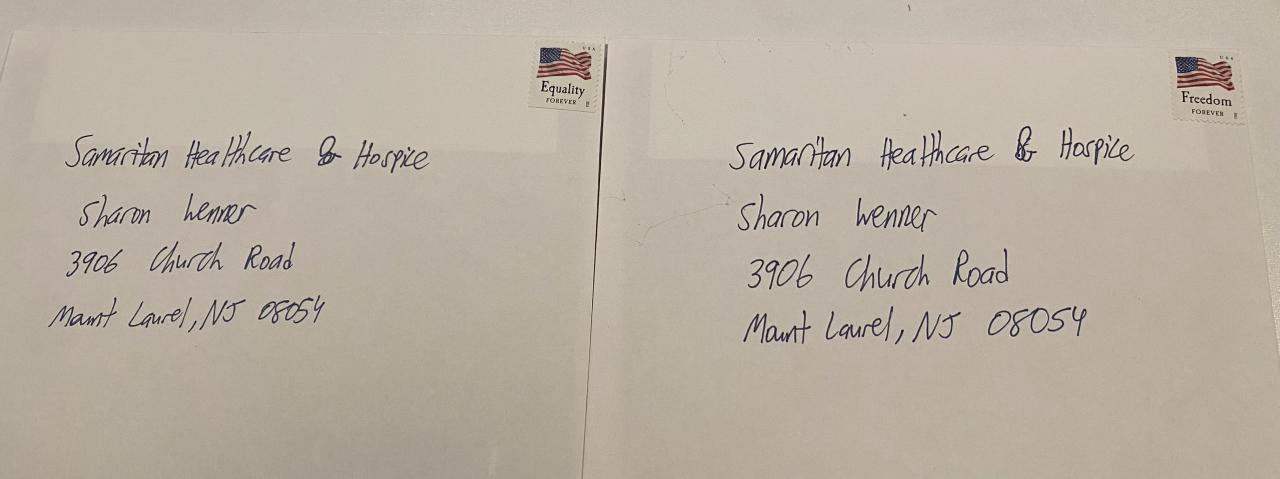 USA
Equality
FOREVER
Samaritan Healthcare & Hospice
Sharon Wenner
3906 Church Road
Mount Laurel, NJ 08054
USA
Freedom
FOREVER
Samaritan Healthcare & Hospice
Sharon Wenner
3906 Church Road
Mount Laurel, NJ 08054